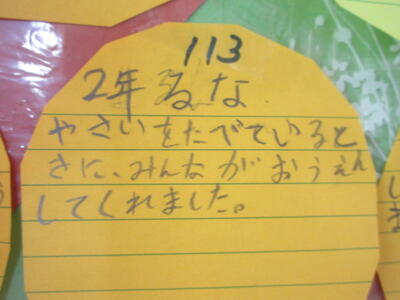 113
2年 るな
やさいをたべていると
きに、みんながおうえん
してくれました。